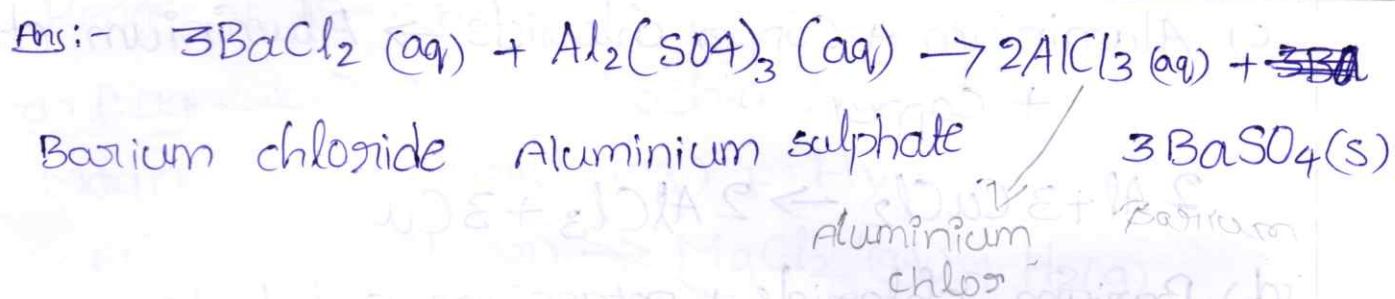 Ans:- 3BaCl2 (aq) + Al2(SO4)3 (aq) → 2AlCl3 (aq) +
Barium chloride Aluminium sulphate 3BaSO4(s)
Aluminium Barium
chlor